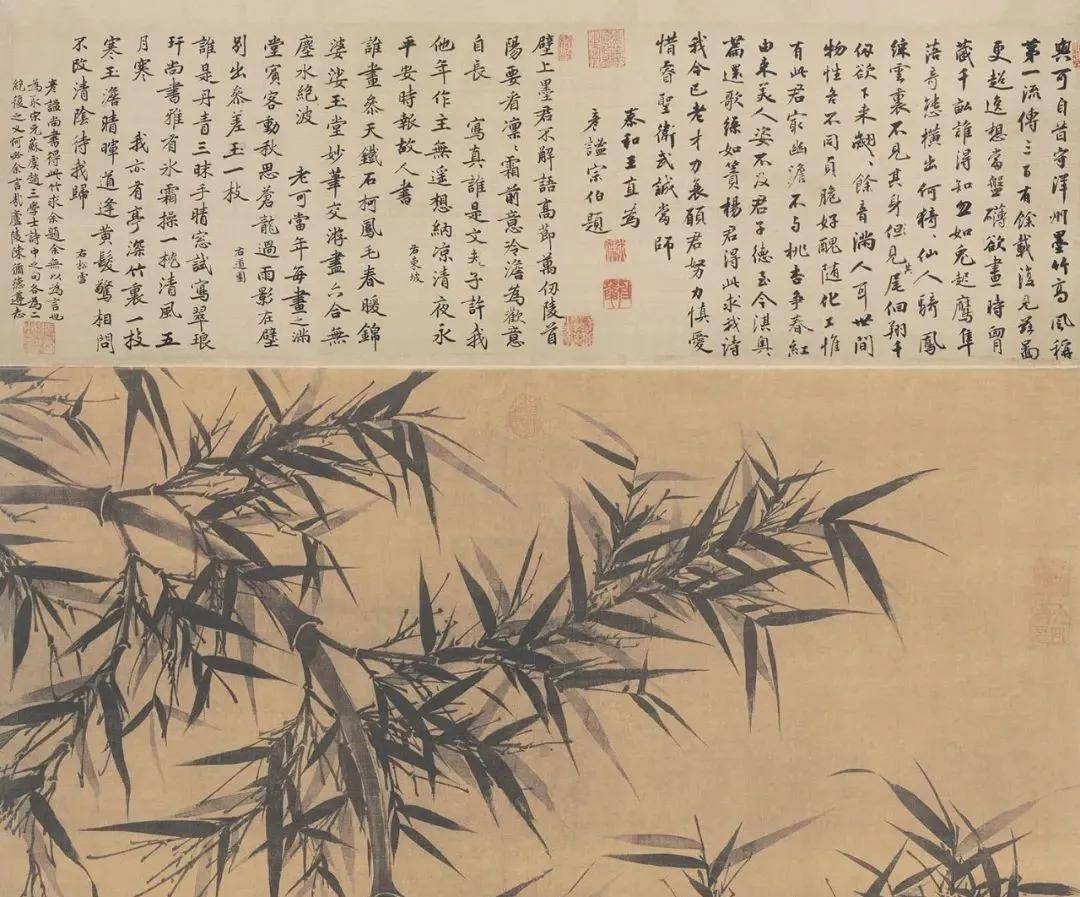 與可昔守洋州墨竹高風稱
第一流傳三百有餘載復見茲啚
更超逸想當盤礴欲畫時胷
藏千畝誰得知忽如兔起鷹隼
落奇態橫出何猗仙人騎鳳
綠雲裏不見其身但見其尾佪翔千
仭欲下来翩翩餘音滿人耳世間
物性各不同貞脆好醜隨化工惟
有此君最幽澹不与桃杏爭春紅
由来美人姿不及君子德至今淇奥
篇還歌綠如簀楊君得此求我詩
我今已老才力衰願君努力慎愛
惜睿聖衛武誠當師
泰和王直為
彥謐宗伯題
壁上墨君不解語高節萬仞陵首
陽要看凜凜霜前意冷澹為歡意
自長 寫真誰是文夫子許我
他年作主無遥想納凉清夜永
平安時報故人書 右東坡
誰畫參天鐵石柯鳳毛春暖錦
婆娑玉堂妙筆交游盡六合無
塵水絶波 老可當年每畫之滿
堂賓客動秋思蒼龍過雨影在壁
別出參差玉一枝 右道園
誰是丹青三昧手晴窓試寫翠琅
玕尚書雅有氷霜操一枕清風五
月寒 我亦有亭深竹裏一枝
寒玉澹晴暉道逢黄髮驚相問
不改清陰待我歸 右松雪
彥謐尚書得此竹求余題余無以為言也
為取宋元蘇虞趙三學士詩中之句各為二
絶後之又何必余言哉廬陵陳循德遵志